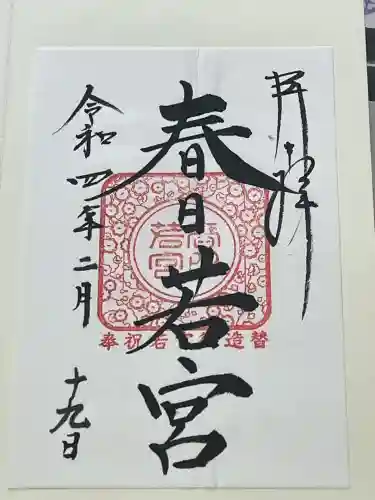 奉拝
春日若宮
若宮
奉祝若宮御造替
令和四年二月
十九日